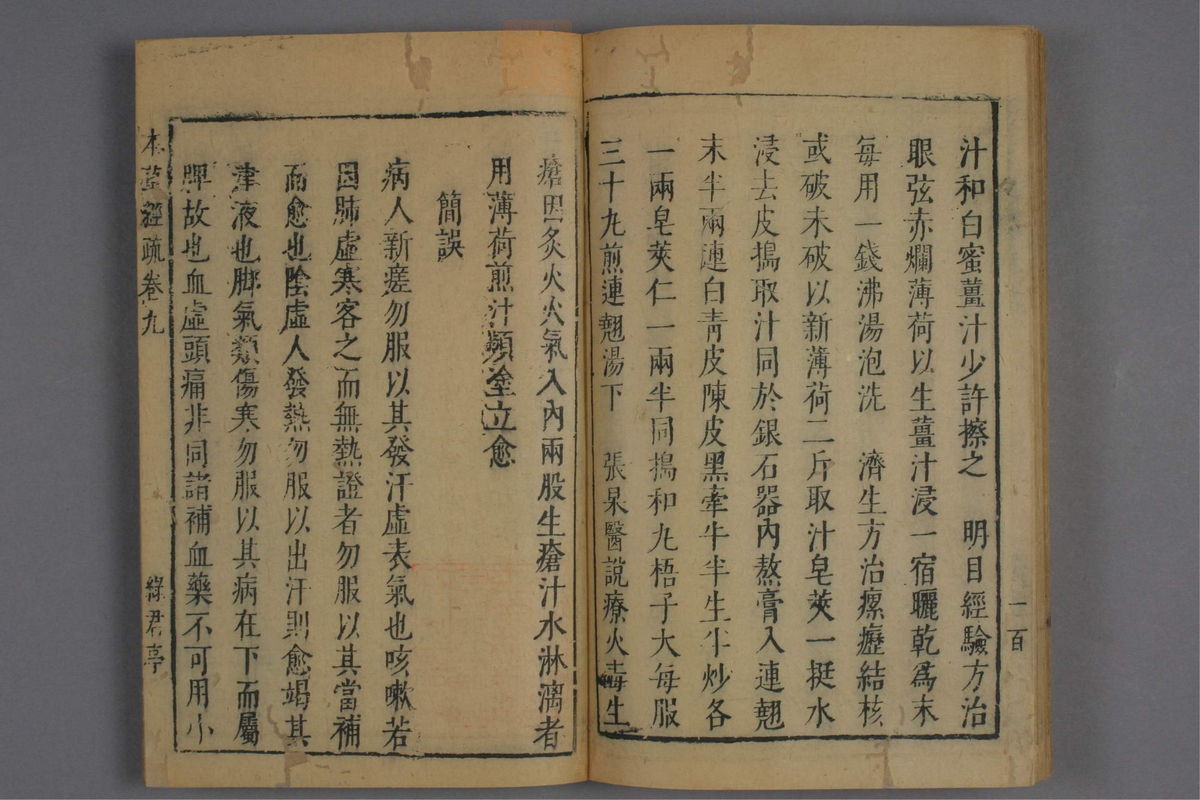 汁和白蜜薑汁少許擦之　明目經驗方治
眼弦赤爛薄荷以生薑汁浸一宿曬乾為末
每用一錢沸湯泡洗　濟生方治瘰癧結核
或破未破以新薄荷二斤取汁皂莢一挺水
浸去皮搗取汁同於銀石器內熬膏入連翹
末半兩連白青皮陳皮黑牽牛半生半炒各
一兩皂莢仁一兩半同搗和丸梧子大每服
三十九煎連翹湯下　張杲醫說療火毒生
二百
瘡因灸火火氣入內兩股生瘡汁水淋漓者
用薄荷煎汁頻塗立愈
簡誤
病人新瘥勿服以其發汗虛表氣也咳嗽若
因肺虛寒客之而無熱證者勿服以其當補
而愈也陰虛人發熱勿服以出汗則愈竭其
津液也脚氣類傷寒勿服以其病在下而屬
脾故也血虛頭痛非同諸補血藥不可用小
本草經疏卷九
綠君亭